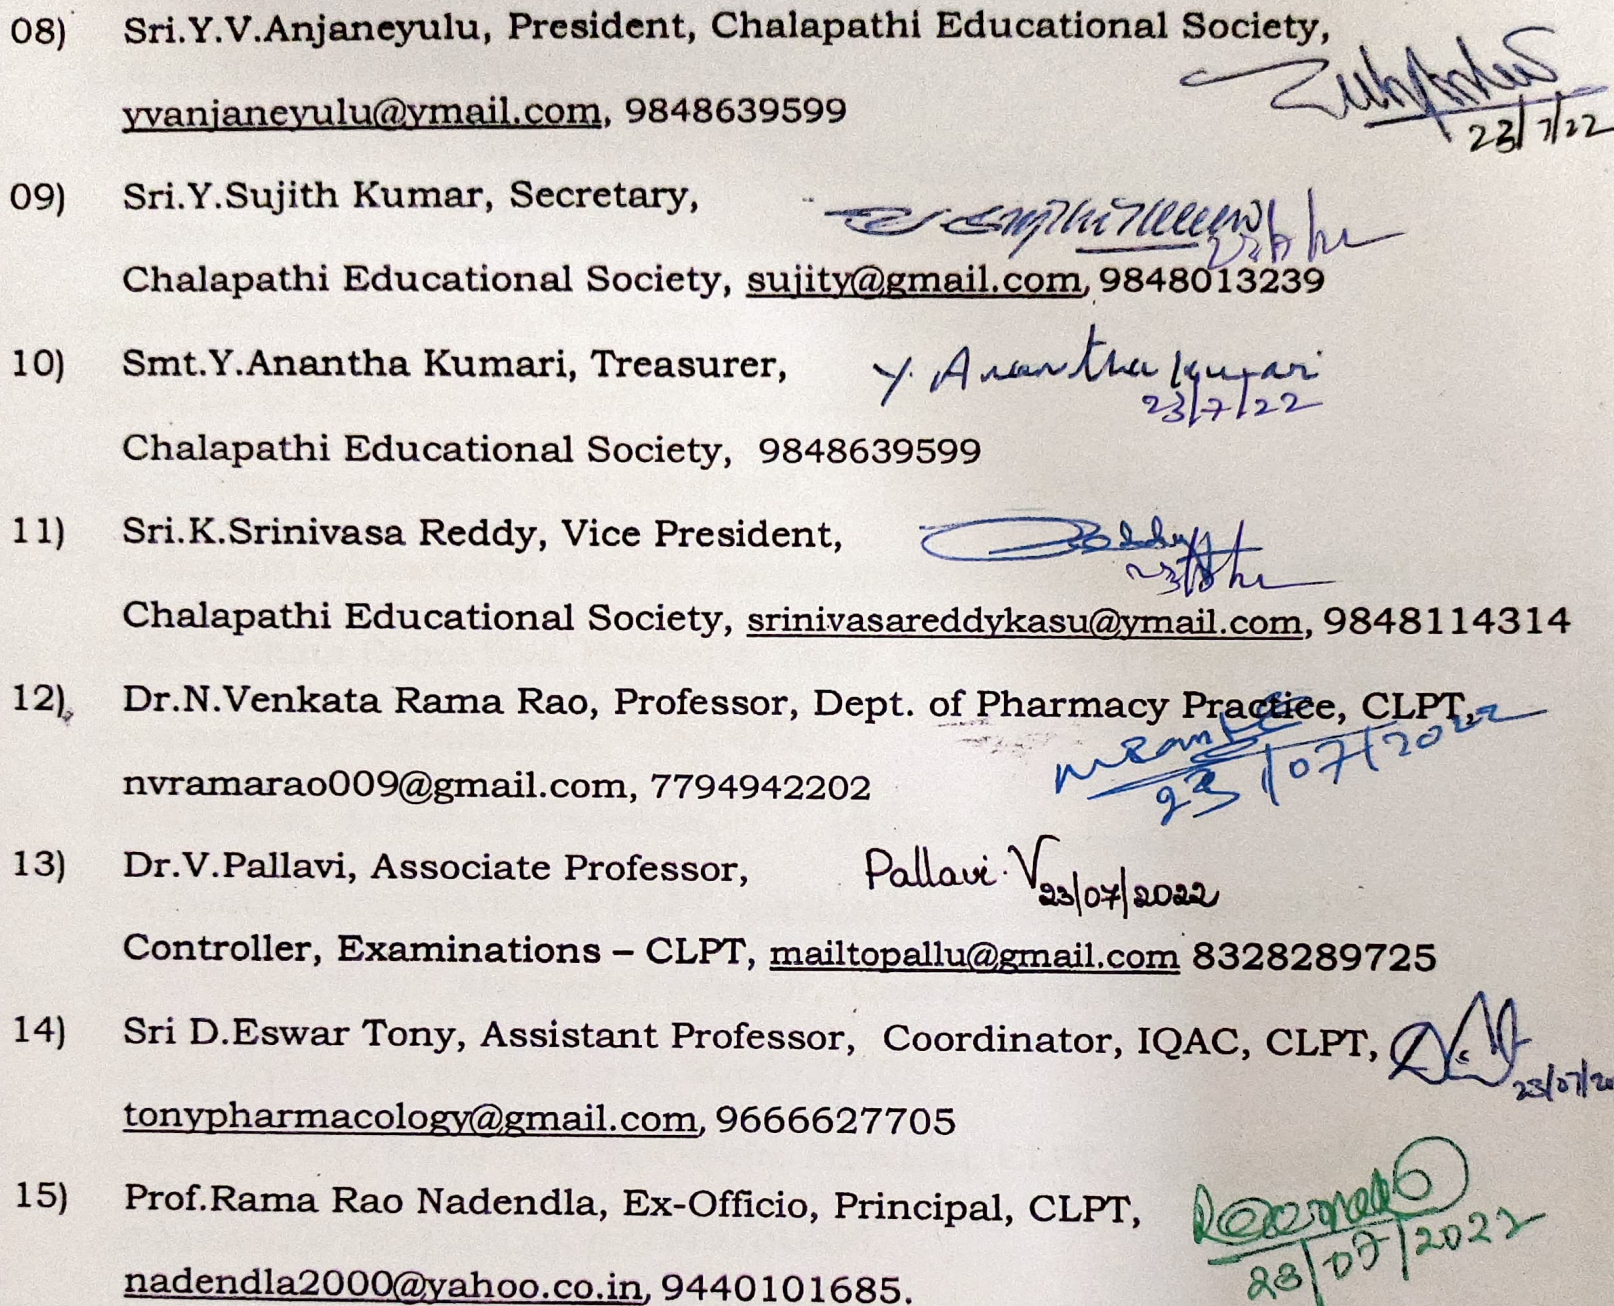 08) Sri.Y.V.Anjaneyulu, President, Chalapathi Educational Society,
yvanjaneyulu@ymail.com, 9848639599
23/7/22
09) Sri.Y.Sujith Kumar, Secretary,
Chalapathi Educational Society, sujity@gmail.com, 9848013239
10) Smt.Y.Anantha Kumari, Treasurer, Y. Anantha Kumari
23/7/22
Chalapathi Educational Society, 9848639599
11) Sri.K.Srinivasa Reddy, Vice President,
Chalapathi Educational Society, srinivasareddykasu@ymail.com, 9848114314
12) Dr.N.Venkata Rama Rao, Professor, Dept. of Pharmacy Practice, CLPT,
nvramarao009@gmail.com, 7794942202 23/07/2022
13) Dr.V.Pallavi, Associate Professor, Pallavi.V 23/07/2022
Controller, Examinations – CLPT, mailtopallu@gmail.com 8328289725
14) Sri D.Eswar Tony, Assistant Professor, Coordinator, IQAC, CLPT,
tonypharmacology@gmail.com, 9666627705
15) Prof.Rama Rao Nadendla, Ex-Officio, Principal, CLPT,
23/07/2022
nadendla2000@yahoo.co.in, 9440101685.